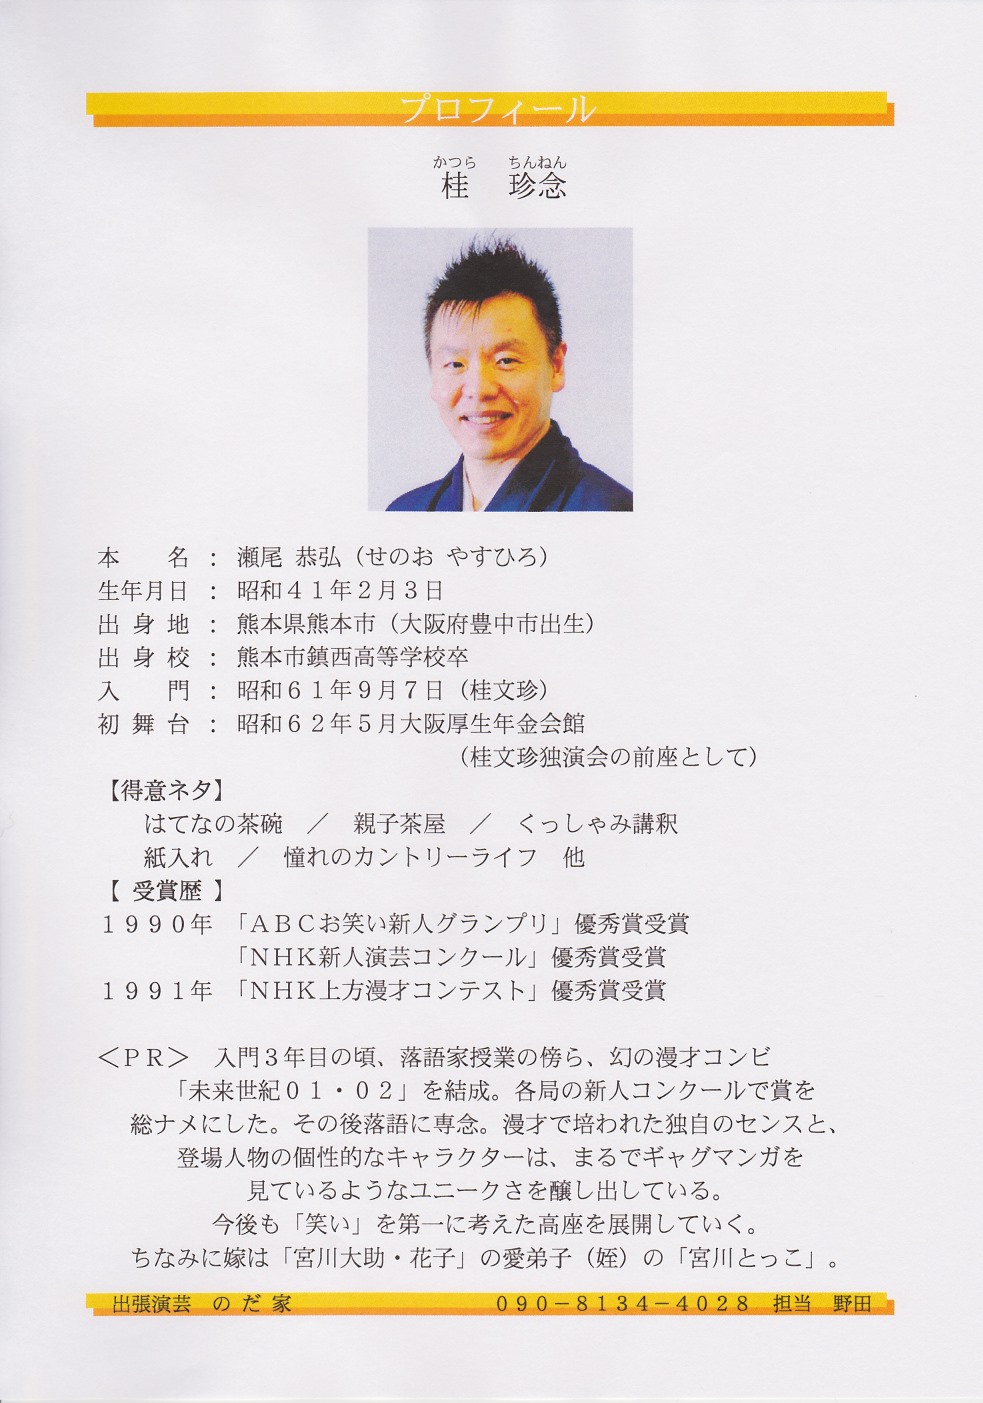 プロフィール
かつら ちんねん
桂 珍念
本 名 : 瀬尾 恭弘(せのお やすひろ)
生年月日 : 昭和41年2月3日
出 身 地 : 熊本県熊本市(大阪府豊中市出生)
出 身 校 : 熊本市鎮西高等学校卒
入 門 : 昭和61年9月7日(桂文珍)
初 舞 台 : 昭和62年5月大阪厚生年金会館
(桂文珍独演会の前座として)
【得意ネタ】
はてなの茶碗 / 親子茶屋 / くっしゃみ講釈
紙入れ / 憧れのカントリーライフ 他
【 受賞歴 】
1990年 「ABCお笑い新人グランプリ」優秀賞受賞
「NHK新人演芸コンクール」優秀賞受賞
1991年 「NHK上方漫才コンテスト」優秀賞受賞
<PR> 入門3年目の頃、落語家授業の傍ら、幻の漫才コンビ
「未来世紀01・02」を結成。各局の新人コンクールで賞を
総ナメにした。その後落語に専念。漫才で培われた独自のセンスと、
登場人物の個性的なキャラクターは、まるでギャグマンガを
見ているようなユニークさを醸し出している。
今後も「笑い」を第一に考えた高座を展開していく。
ちなみに嫁は「宮川大助・花子」の愛弟子(姪)の「宮川とっこ」。
出張演芸 の だ 家 090-8134-4028 担当 野田